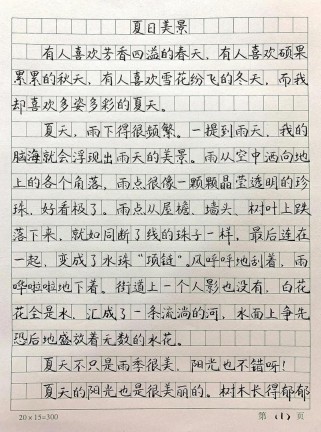 夏日美景
有人喜欢芳香四溢的春天，有人喜欢硕果
累累的秋天，有人喜欢雪花纷飞的冬天，而我
却喜欢多姿多彩的夏天。
夏天，雨下得很频繁。一提到雨天，我的
脑海就会浮现出雨天的美景。雨从空中洒向地
上的各个角落，雨点很像一颗颗晶莹透明的珍
珠，好看极了。雨点从屋檐、墙头、树叶上跌
落下来，就如同断了线的珠子一样，最后连在
一起，变成了水珠“项链”。风呼呼地刮着，雨
哗啦啦地下着。街道上一个人影也没有，白花
花全是水，汇成了一条流淌的河，水面上争先
恐后地盛放着无数的水花。
夏天不只是雨季很美，阳光也不错呀！
夏天的阳光也是很美丽的。树木长得郁郁
20×15=300
第（1）页